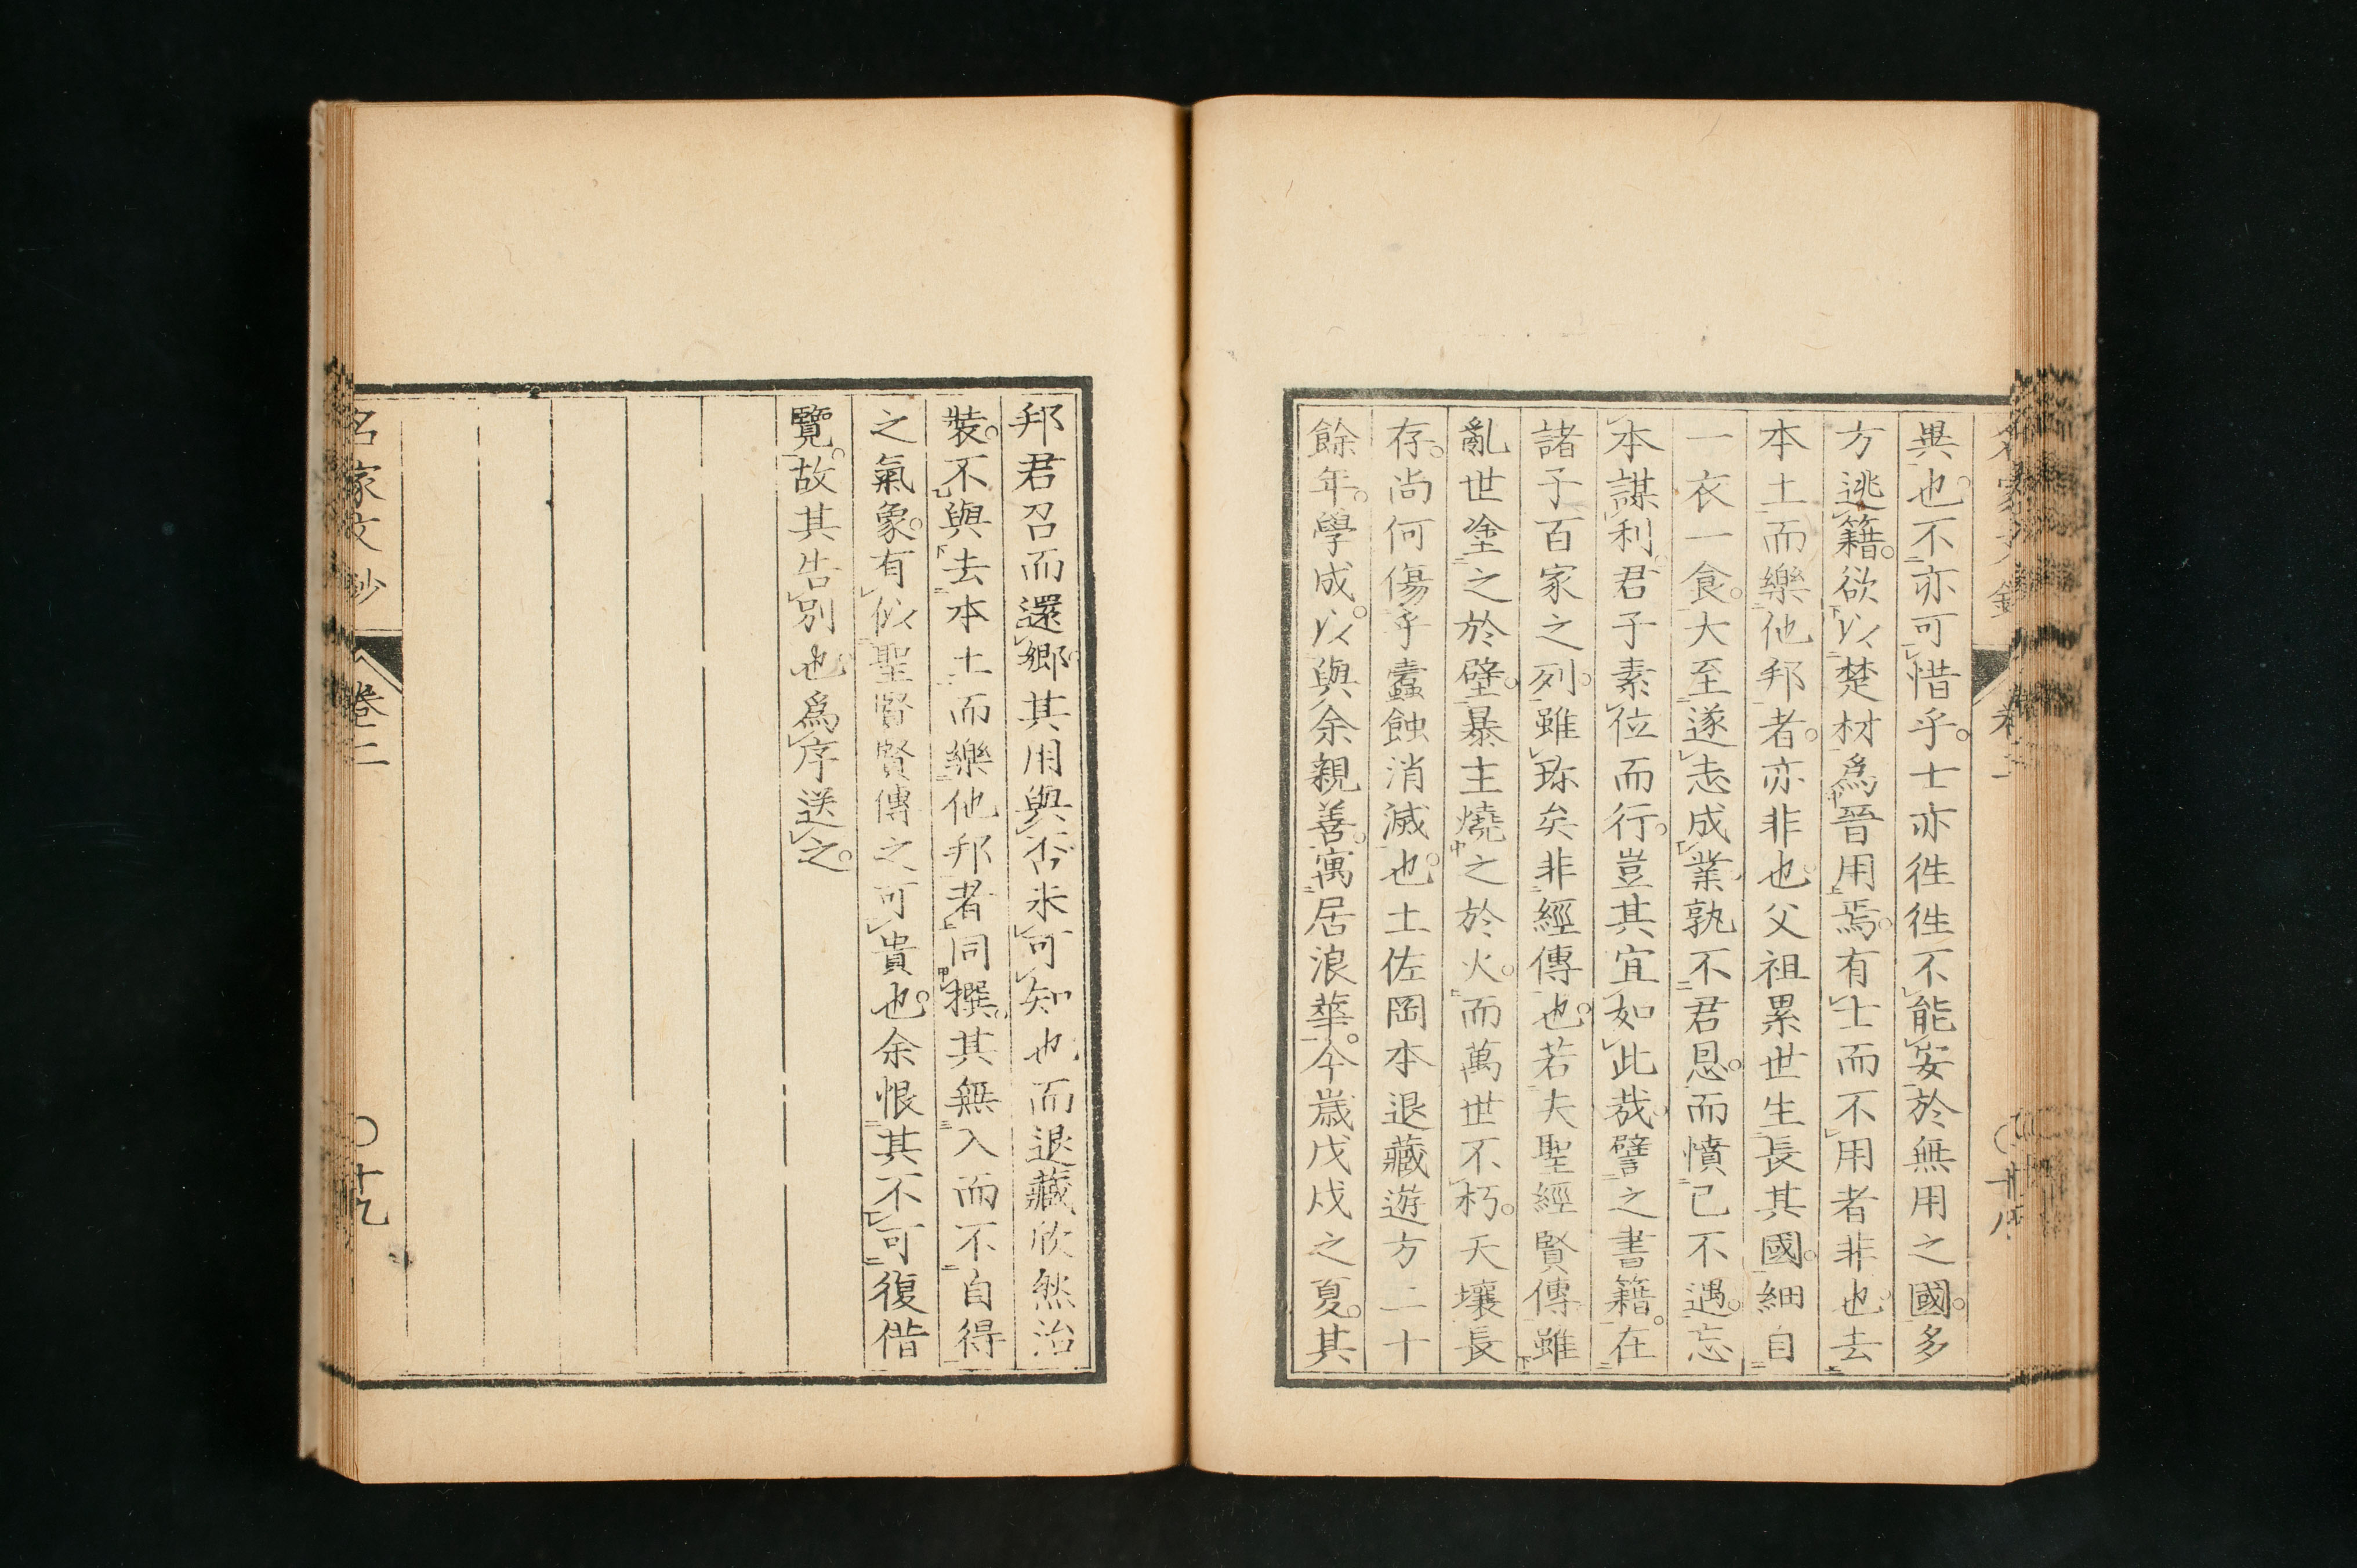 異也。不亦可惜乎。士亦徃徃不能安於無用之國。多
方逃籍。欲以楚材爲晉用焉。有士而不用者非也。去
本土而樂他邦者。亦非也。父祖累世生長其國。細自
一衣一食。大至遂志成業孰不君恩。而憤己不遇。忘
本謀利。君子素位而行。豈其宜如此哉。譬之書籍。在
諸子百家之列。雖珎矣非經傳也。若夫聖經賢傳雖
亂世塗之於壁。暴主燒之於火。而萬世不朽。天壤長
存。尚何傷乎蠹蝕消滅也。土佐岡本退藏遊方二十
餘年。學成。以與余親善。寓居浪華。今歲戊戌之夏。其
邦君召而還鄉。其用與否未可知也而退藏欣然治
裝。不與去本土而樂他邦者同撰。其無入而不自得
之氣象。有似聖賢賢傳之可貴也。余恨其不可復借
覽。故其告別也。爲序送之。
名家文抄 卷二 〇十九